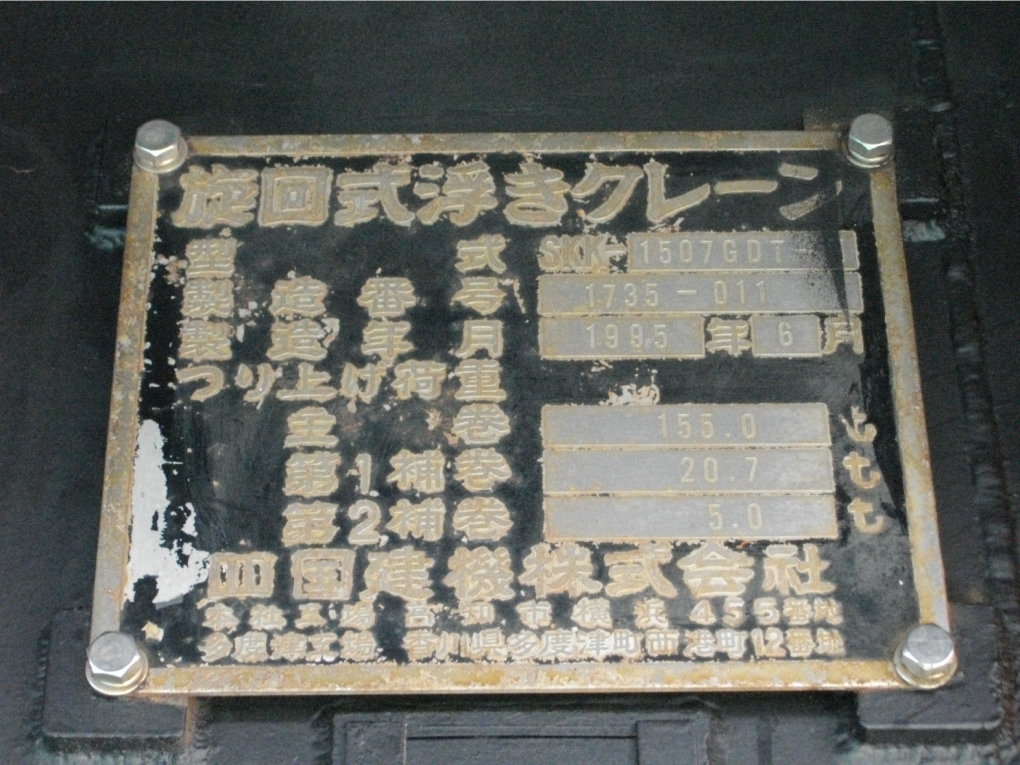 旋回式浮きクレーン
型式 SKK-1507GDT
製造番号 1735-011
製造年月 1995年6月
つり上げ荷重
主巻 155.0 t
第1補巻 20.7 t
第2補巻 5.0 t
四国建機株式会社
本社工場 高知市横浜455番地
多度津工場 香川県多度津町西港町12番地